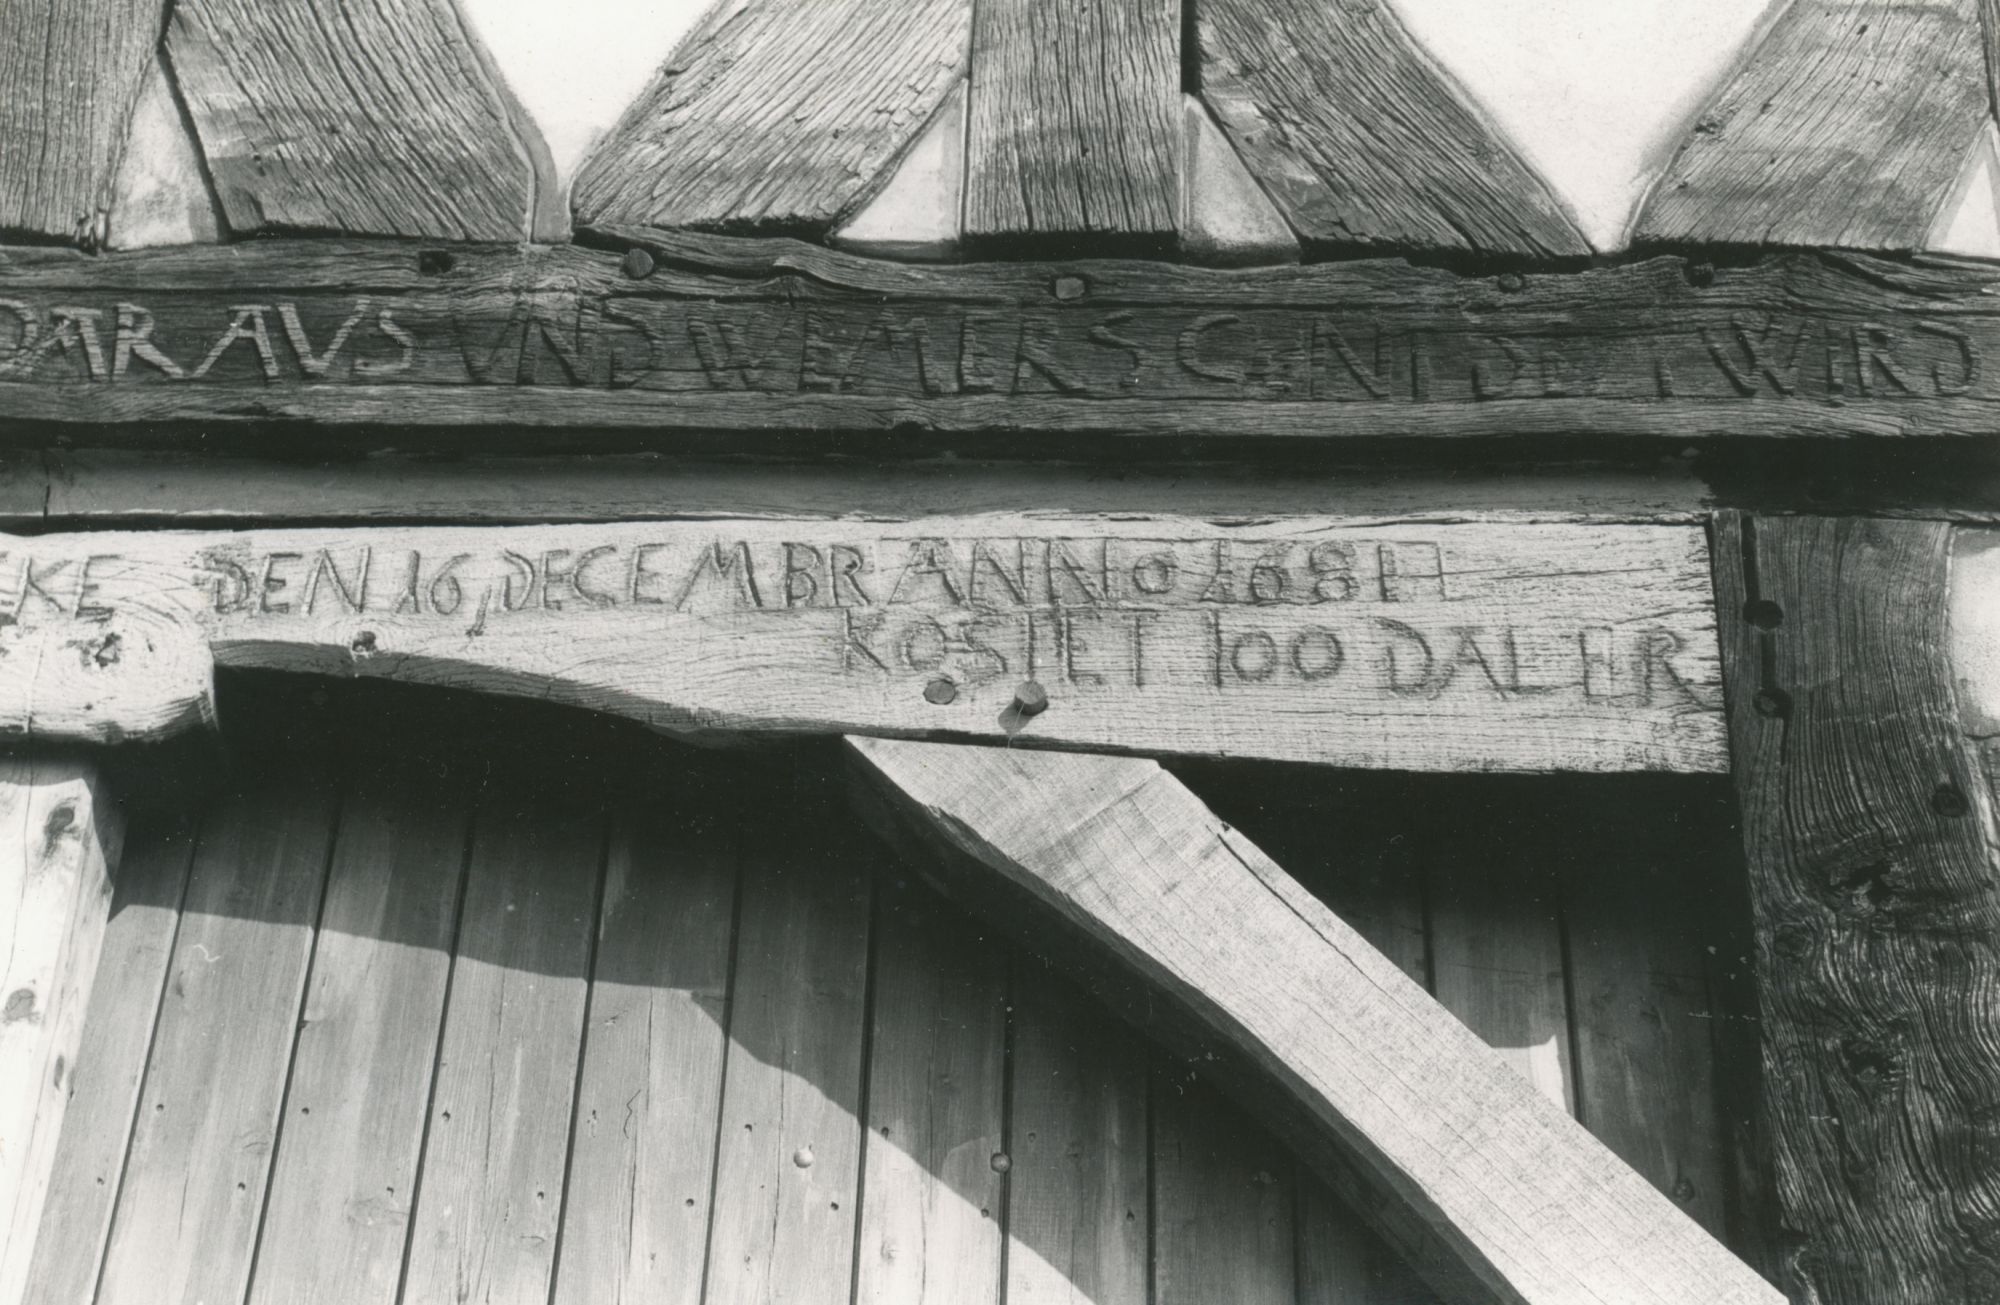 DARAVS VND WEMERS GENT DET WIRD
EKE DEN 16, DECEMBR ANNO 1681 H
KOSTET 100 DALER